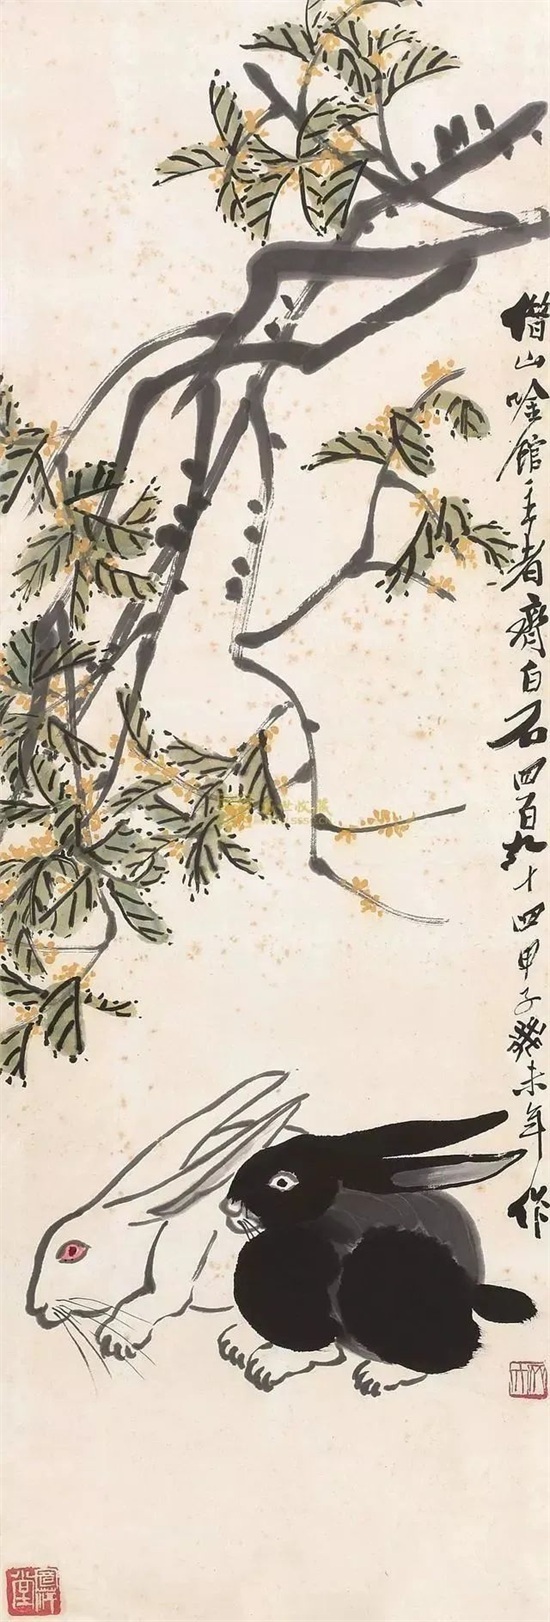 借山唫馆主者齊白石四百九十四甲子癸未年作
木人